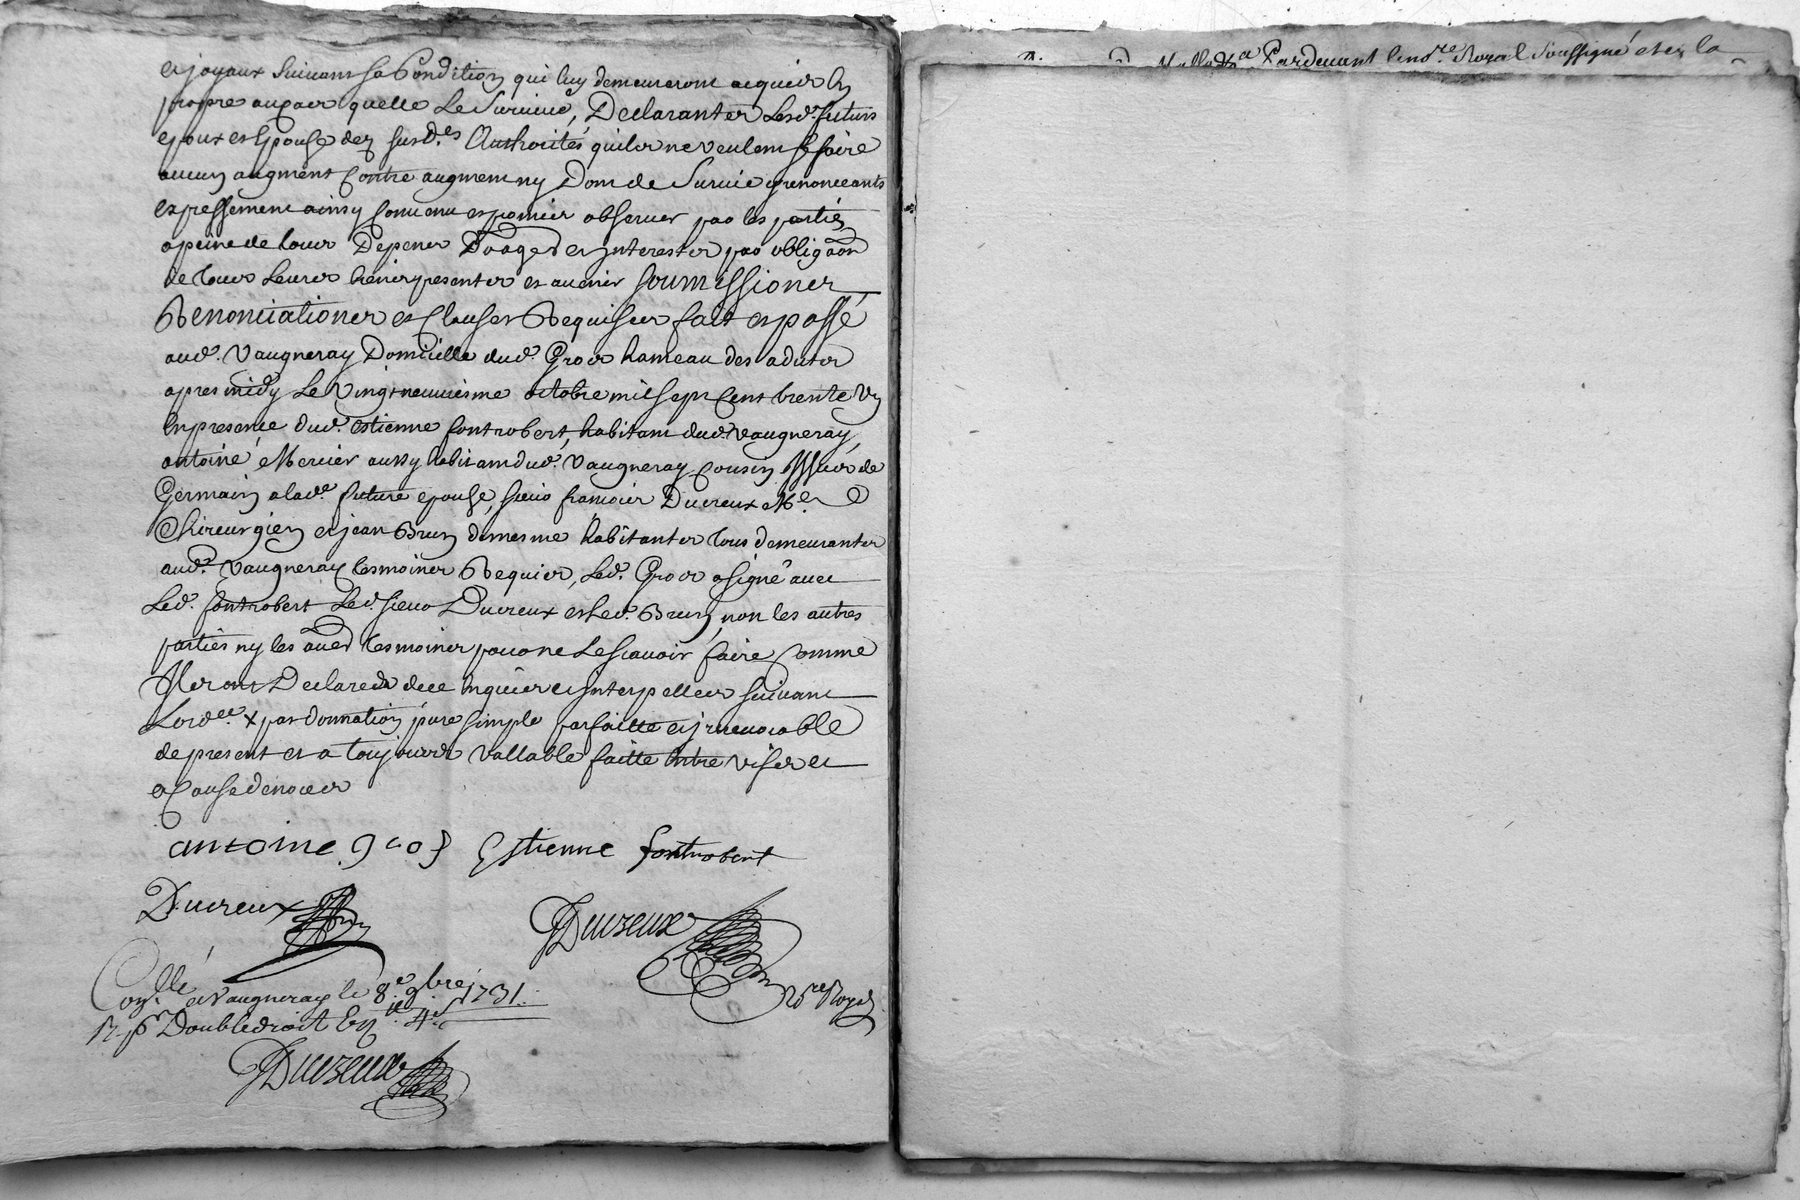 et joyaux suivant sa Condition qui luy demeureront acquis En
propre aux cas quelle Le Survive, Declarantes Lesd. futurs
epoux et Epouse des susd.es Authorités quils ne veulent se faire
aucun augment Contre augment ny Don de Survie y renonceants
expressement ainsy Convenu et promis observer par les parties
a peine de tous Depens Doages et interestes par obliga͠on
de tous Leurs biens presentes et avenir Soumissiones
Renonciationes et Clauses Requises fait et passé
aud. Vaugneray Domicille dud. Gros hameau des adutes
apres midy Le Vingt neufviesme octobre mil sept Cent trente Un
En presence dud. estienne fontrobert, habitant dud. Vaugneray
antoine Mercier aussy habitant dud. Vaugneray Cousin Issus de
Germain a lad.e future epouse, sieur francois Ducreux M.e
Chirurgien et jean Brun de mesme habitantes tous demeurantes
aud. Vaugneray tesmoines Requis, Led. Gros a signé avec
Led. fontrobert Led. sieur Ducreux et Led. Brun, non les autres
parties ny les autres tesmoines pour ne Le scavoir faire Comme
Ils ont Declaredes dece Enquis et Interpelles suivant
Lord.ce x par donnation pure simple parfaitte et irrevocable
de present et a toujoures vallable faitte Entre vifs et
a Cause de noces
antoine gros Estienne fontrobert
Ducreux Brun
Ducreux
No.re Royal
Con.llé a Vaugneray le 8.e 9.bre 1731.
R. p.r Double droit
Ducreux
Pardevant le no.re Royal Soussigné et en la